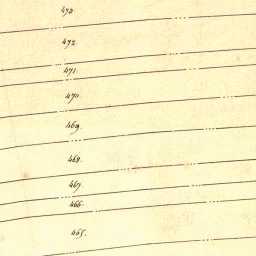 473.
472
471.
470.
469.
468.
467.
466.
465.